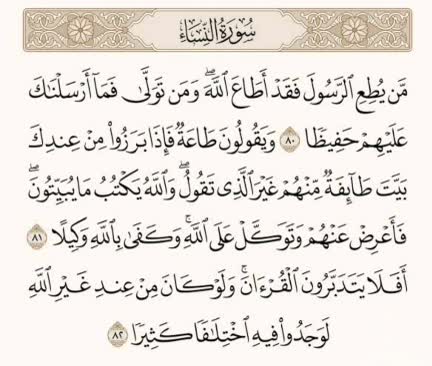 سُورَةُ النِّسَاءِ
مَّن يُطِعِ الرَّسُولَ فَقَدْ أَطَاعَ اللَّهَ ۖ وَمَن تَوَلَّىٰ فَمَا أَرْسَلْنَاكَ
عَلَيْهِمْ حَفِيظًا ٨٠ وَيَقُولُونَ طَاعَةٌ فَإِذَا بَرَزُوا مِنْ عِندِكَ
بَيَّتَ طَائِفَةٌ مِّنْهُمْ غَيْرَ الَّذِي تَقُولُ ۖ وَاللَّهُ يَكْتُبُ مَا يُبَيِّتُونَ ۖ
فَأَعْرِضْ عَنْهُمْ وَتَوَكَّلْ عَلَى اللَّهِ ۚ وَكَفَىٰ بِاللَّهِ وَكِيلًا ٨١
أَفَلَا يَتَدَبَّرُونَ الْقُرْءَانَ ۚ وَلَوْ كَانَ مِنْ عِندِ غَيْرِ اللَّهِ
لَوَجَدُوا فِيهِ اخْتِلَافًا كَثِيرًا ٨٢